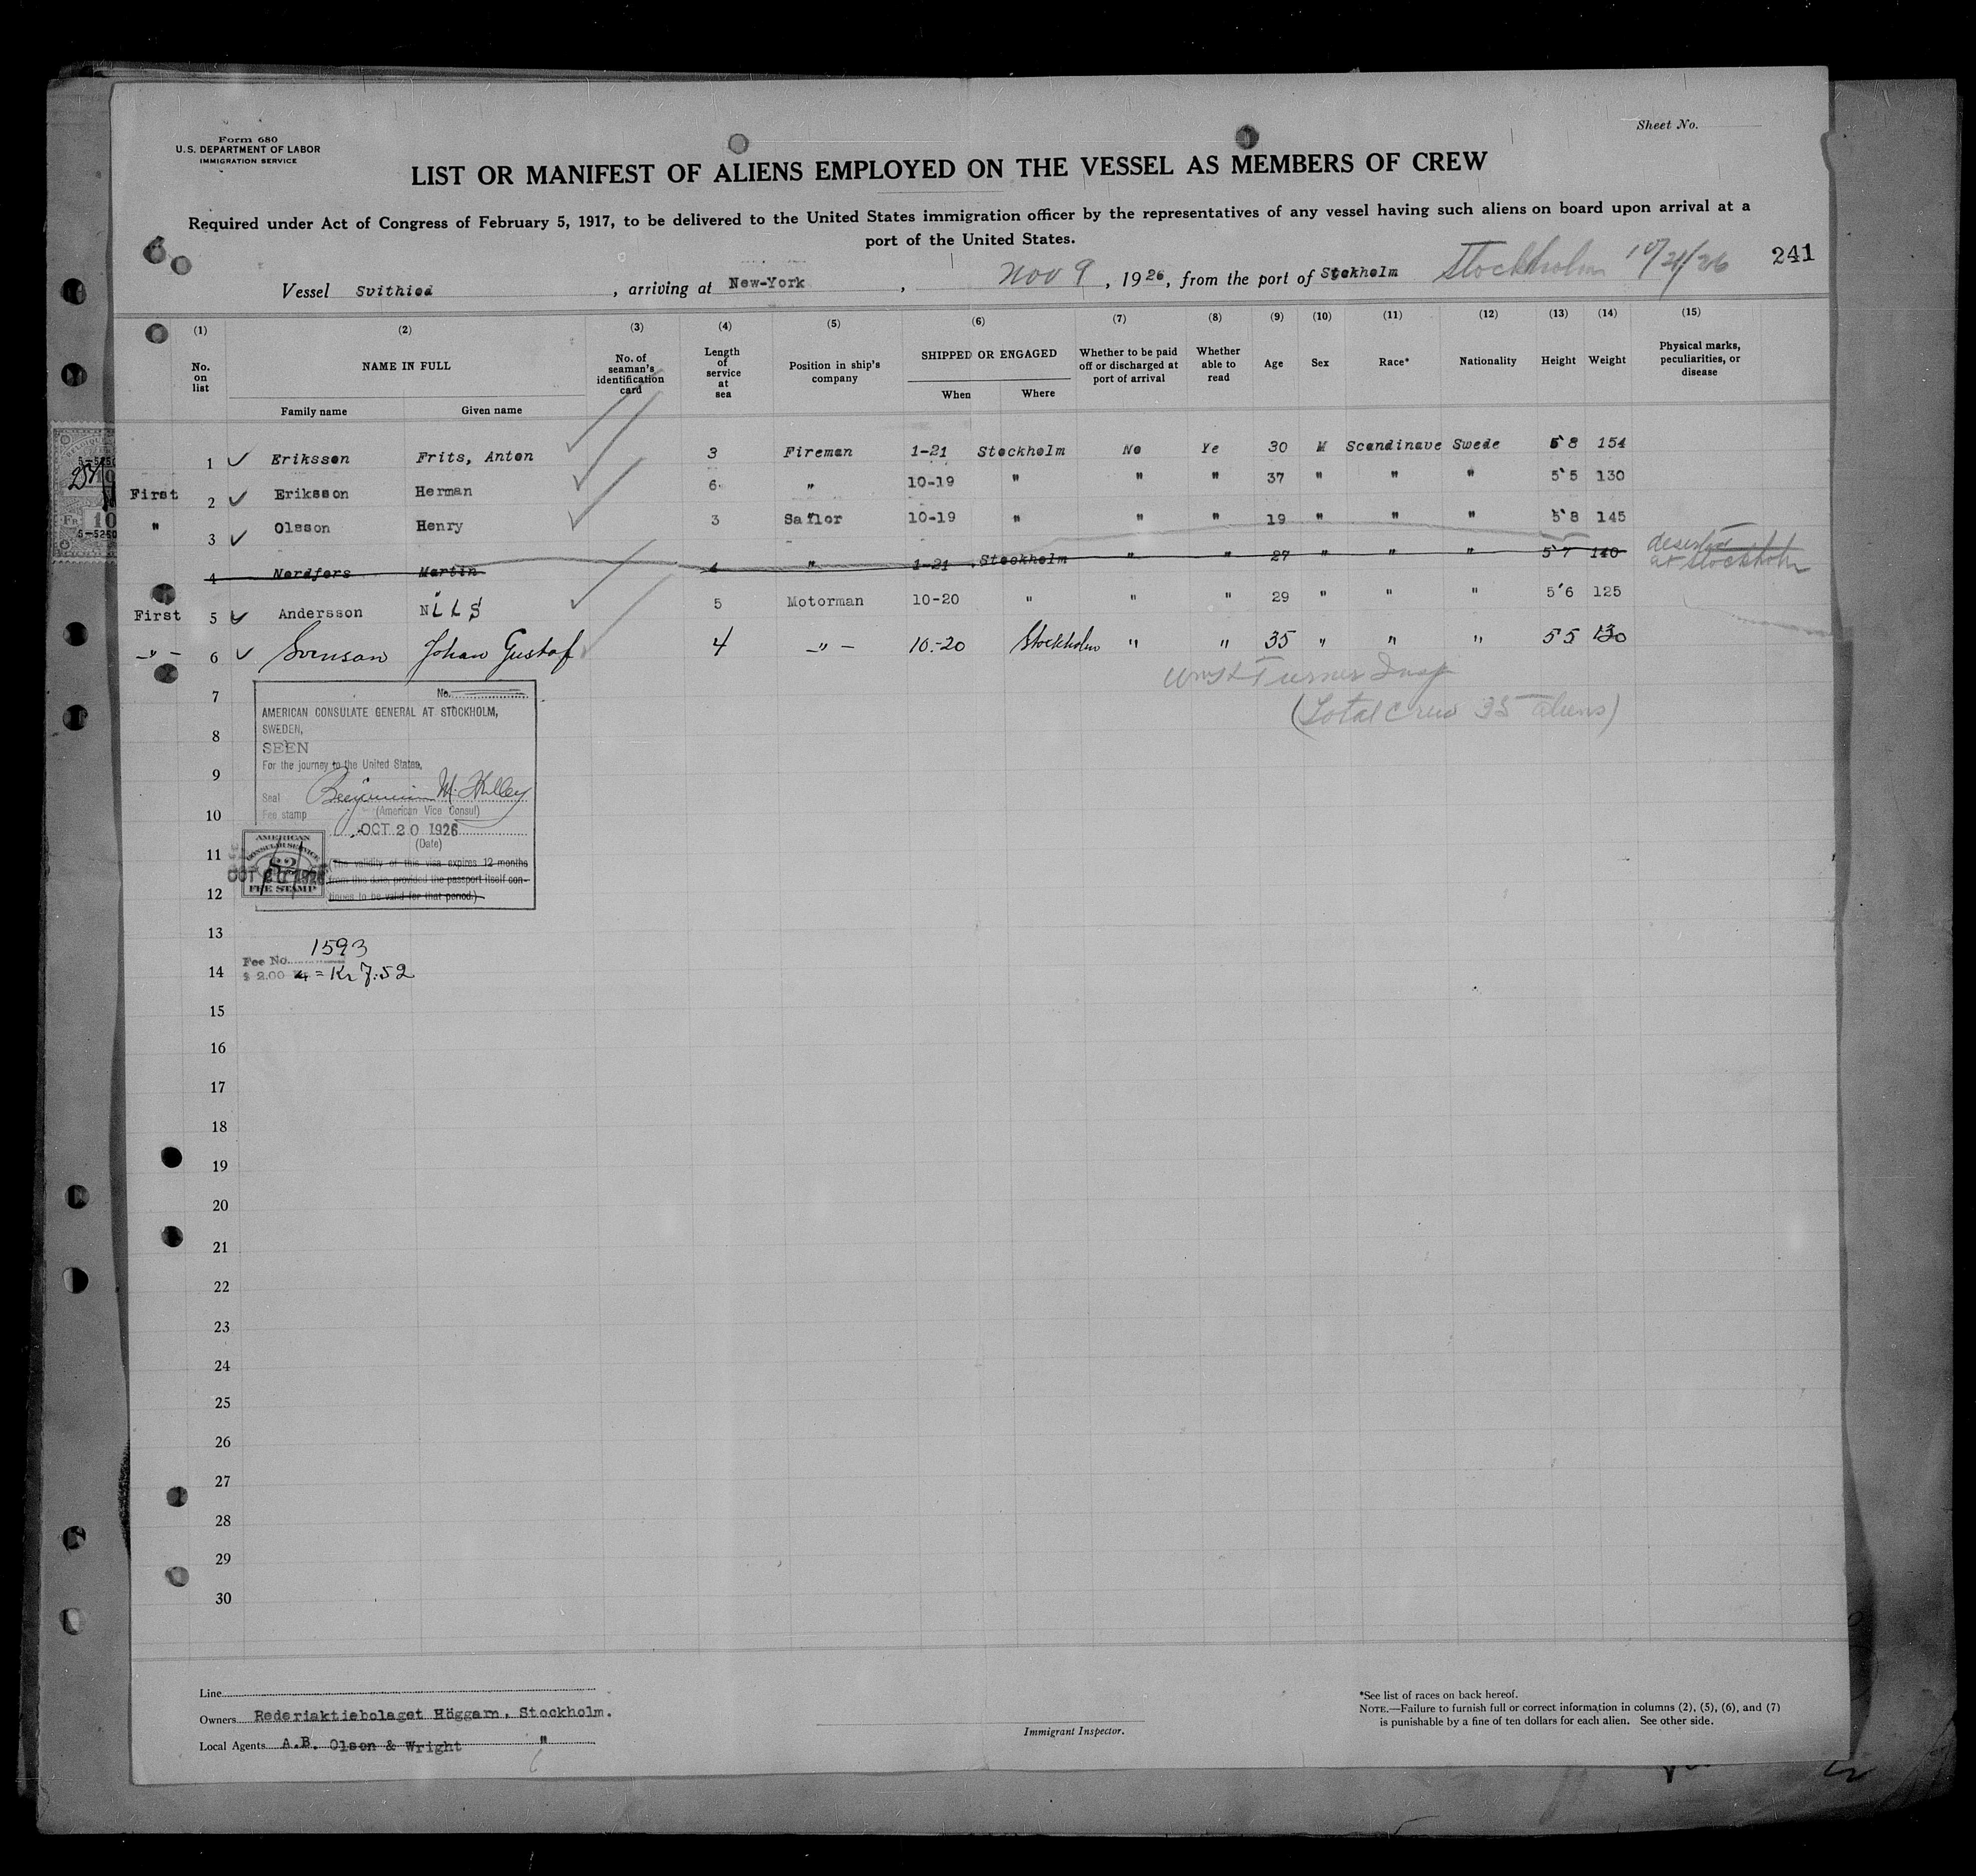 Form 680
U.S. DEPARTMENT OF LABOR
IMMIGRATION SERVICE
Sheet No.
LIST OR MANIFEST OF ALIENS EMPLOYED ON THE VESSEL AS MEMBERS OF CREW
Required under Act of Congress of February 5, 1917, to be delivered to the United States immigration officer by the representatives of any vessel having such aliens on board upon arrival at a
port of the United States.
Stockholm 10/21/26 241
Vessel Svithiod, arriving at New-York, Nov 9, 1926, from the port of Stokholm
(1) (2) (3) (4) (5) (6) (7) (8) (9) (10) (11) (12) (13) (14) (15)
No. on list
NAME IN FULL
Family name Given name
No. of seaman's identification card
Length of service at sea
Position in ship's company
SHIPPED OR ENGAGED
When Where
Whether to be paid off or discharged at port of arrival
Whether able to read
Age Sex Race* Nationality Height Weight
Physical marks, peculiarities, or disease
1 Eriksson Frits, Anton 3 Fireman 1-21 Stockholm No Ye 30 M Scandinave Swede 5'8 154
First 2 Eriksson Herman 6 " 10-19 " " " 37 " " " 5'5 130
" 3 Olsson Henry 3 Sailor 10-19 " " " 19 " " " 5'8 145
4 Nordfors Martin 4 " 1-21 Stockholm " " 27 " " " 5'7 140 deserted at Stockholm
First 5 Andersson NILS 5 Motorman 10-20 " " " 29 " " " 5'6 125
-"- 6 Svenson Johan Gustaf 4 -"- 10-20 Stockholm " " 35 " " " 55 130
Turner Insp
(Total Crew 35 aliens)
7
8
9
10
11
12
13
14
15
16
17
18
19
20
21
22
23
24
25
26
27
28
29
30
No.
AMERICAN CONSULATE GENERAL AT STOCKHOLM,
SWEDEN,
SEEN
For the journey to the United States,
Seal Benjamin M. Hulley
Fee stamp (American Vice Consul)
OCT 20 1926
(Date)
(The validity of this visa expires 12 months
from this date, provided the passport itself con-
tinues to be valid for that period.)
AMERICAN
CONSULAR SERVICE
$2
OCT 20 1926
FEE STAMP
Fee No. 1593
$ 2.00 = Kr 7:52
Line
Owners Rederiaktiebolaget Höggarn, Stockholm.
Local Agents A.B. Olson & Wright "
Immigrant Inspector.
*See list of races on back hereof.
NOTE.—Failure to furnish full or correct information in columns (2), (5), (6), and (7)
is punishable by a fine of ten dollars for each alien. See other side.